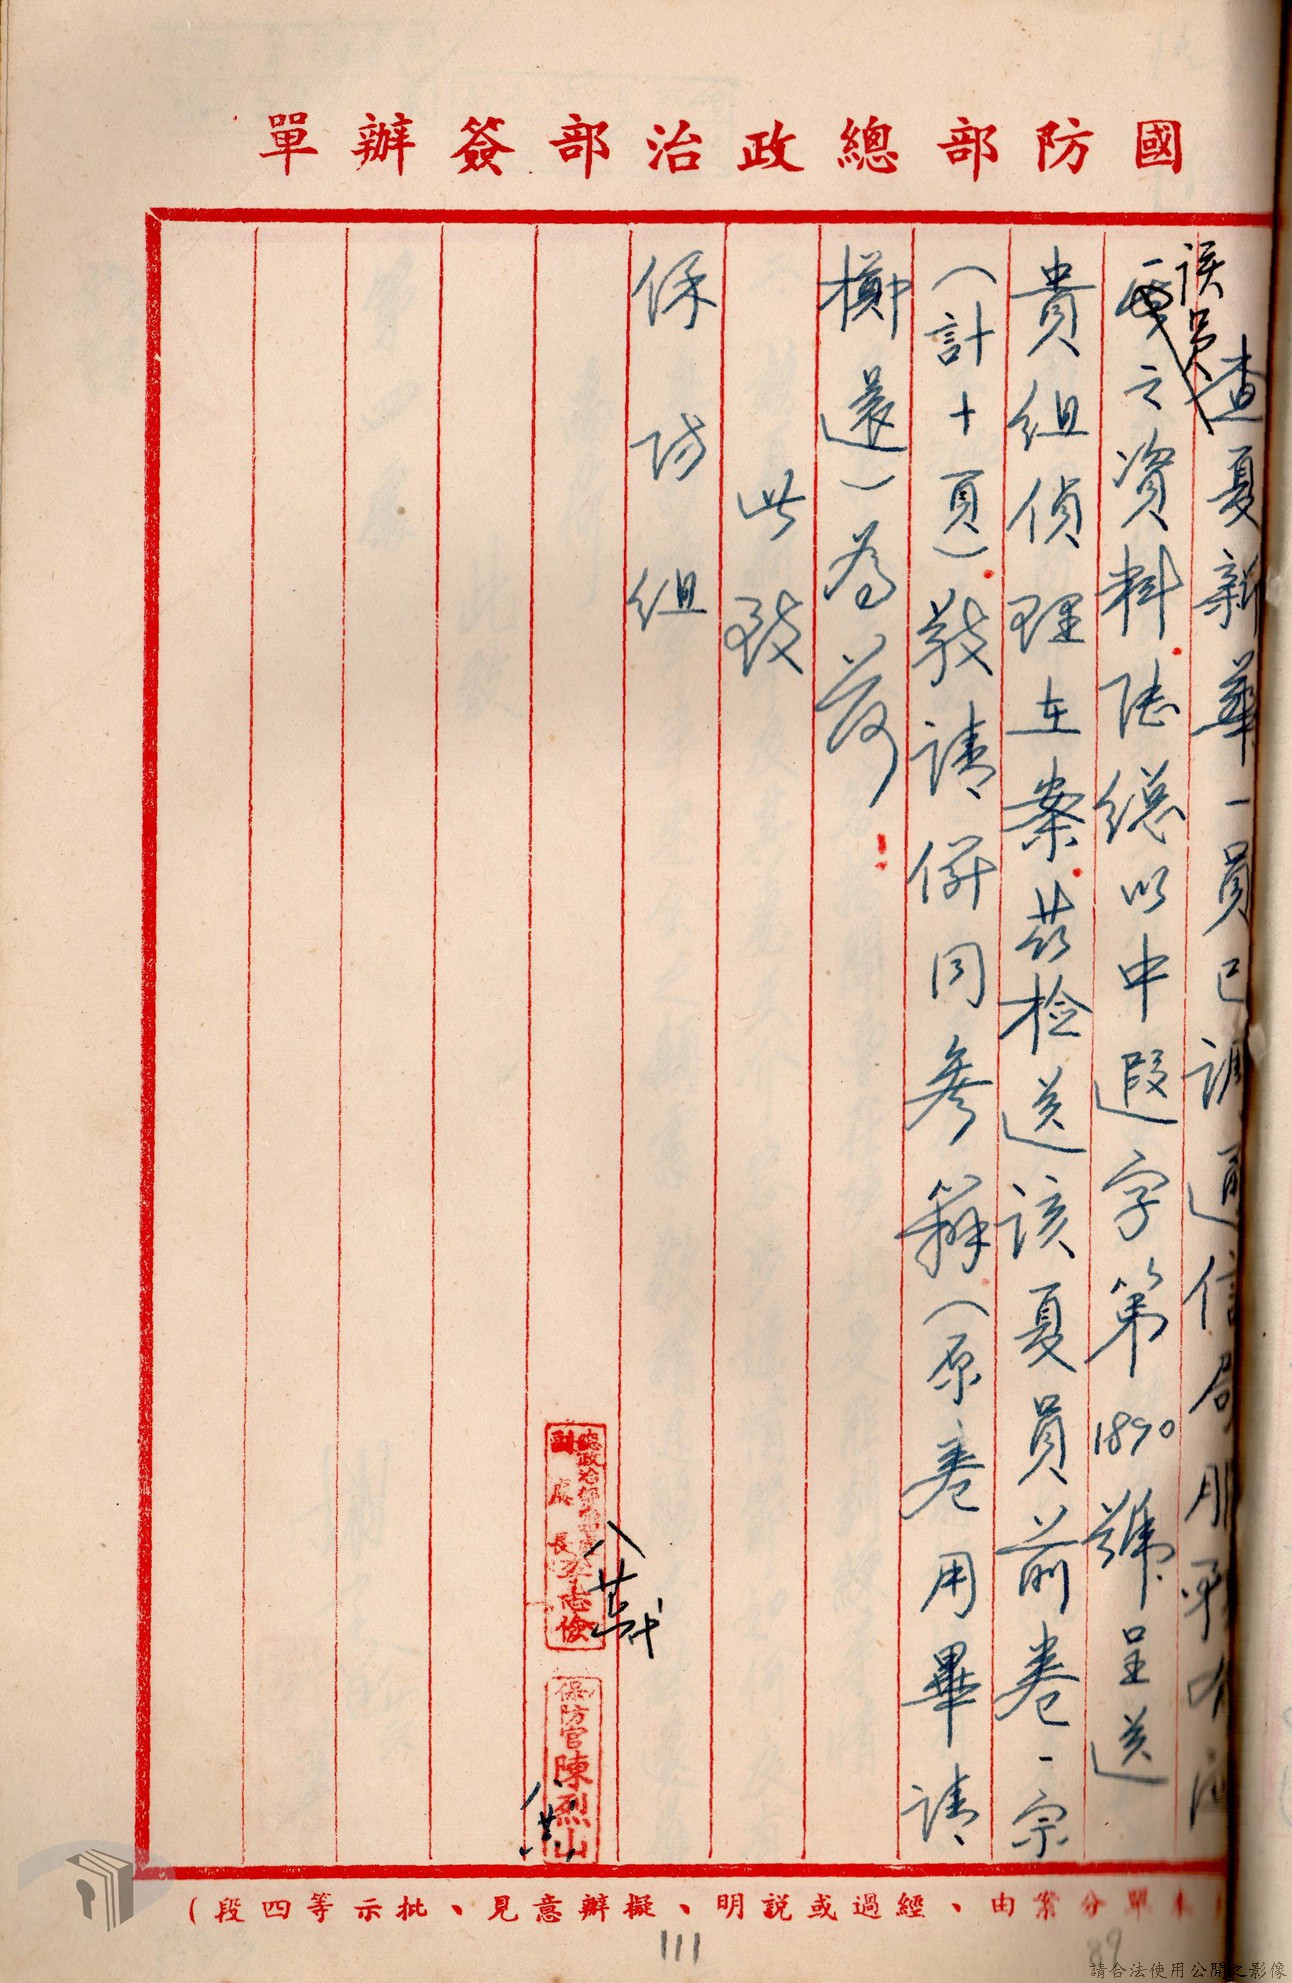 國防部總政治部簽辦單
查夏新華一員已調通信局服務有
該員
之資料陸總以中遐字第1890號呈送
貴組偵理在案茲檢送該夏員前卷一宗
(計十頁)敬請併同參辦(原卷用畢請
擲還)為荷
此致
保防組
總政治部第
副處長李志俊
八 廿
保防官陳烈山
單分案由、經過或說明、擬辦意見、批示等四段)
111
89
請合法使用公開之影像